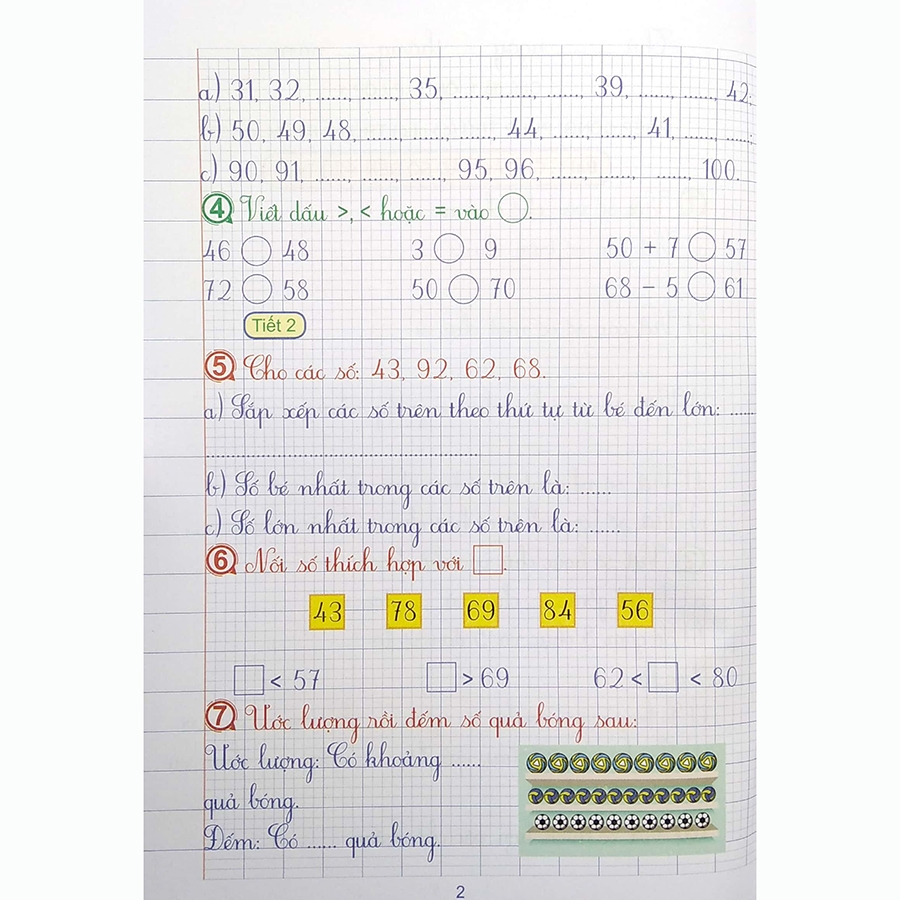 a) 31, 32, ......, ......, 35, ......, ......, ......, 39, ......, ......, 42.
b) 50, 49, 48, ......, ......, ......, 44, ......, ......, 41, ......, ......
c) 90, 91, ......, ......, ......, 95, 96, ......, ......, ......, 100.
4 Viết dấu >, < hoặc = vào ◯.
46 ◯ 48 3 ◯ 9 50 + 7 ◯ 57
72 ◯ 58 50 ◯ 70 68 - 5 ◯ 61
Tiết 2
5 Cho các số: 43, 92, 62, 68.
a) Sắp xếp các số trên theo thứ tự từ bé đến lớn: ......
......................................................
b) Số bé nhất trong các số trên là: ......
c) Số lớn nhất trong các số trên là: ......
6 Nối số thích hợp với □.
43 78 69 84 56
□ < 57 □ > 69 62 < □ < 80
7 Ước lượng rồi đếm số quả bóng sau:
Ước lượng: Có khoảng ......
quả bóng.
Đếm: Có ...... quả bóng.
2